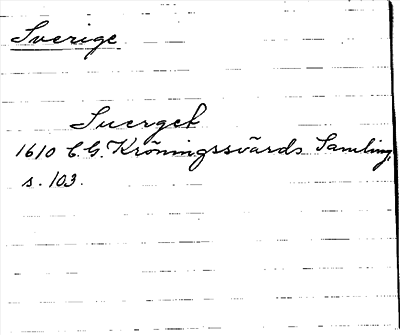 Sverige
Suerget
1610 C.G. Kröningssvärds Samling,
s. 103.